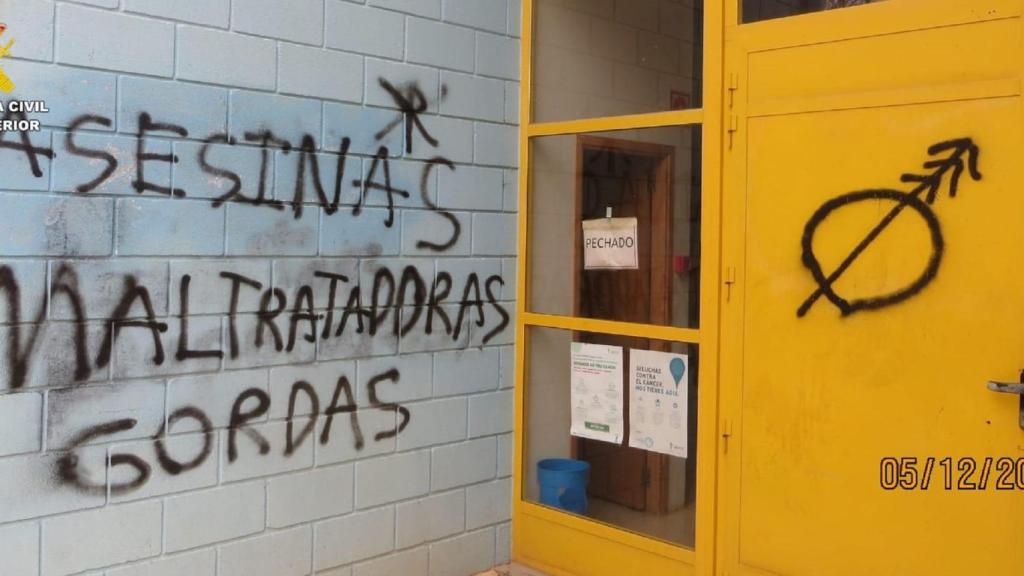 A CIVIL
ERIOR
ASESINAS
MALTRATADORAS
GORDAS
PECHADO
SI LUCHAS
CONTRA
EL CÁNCER,
NOS TIENES AQUÍ.
05/12/20